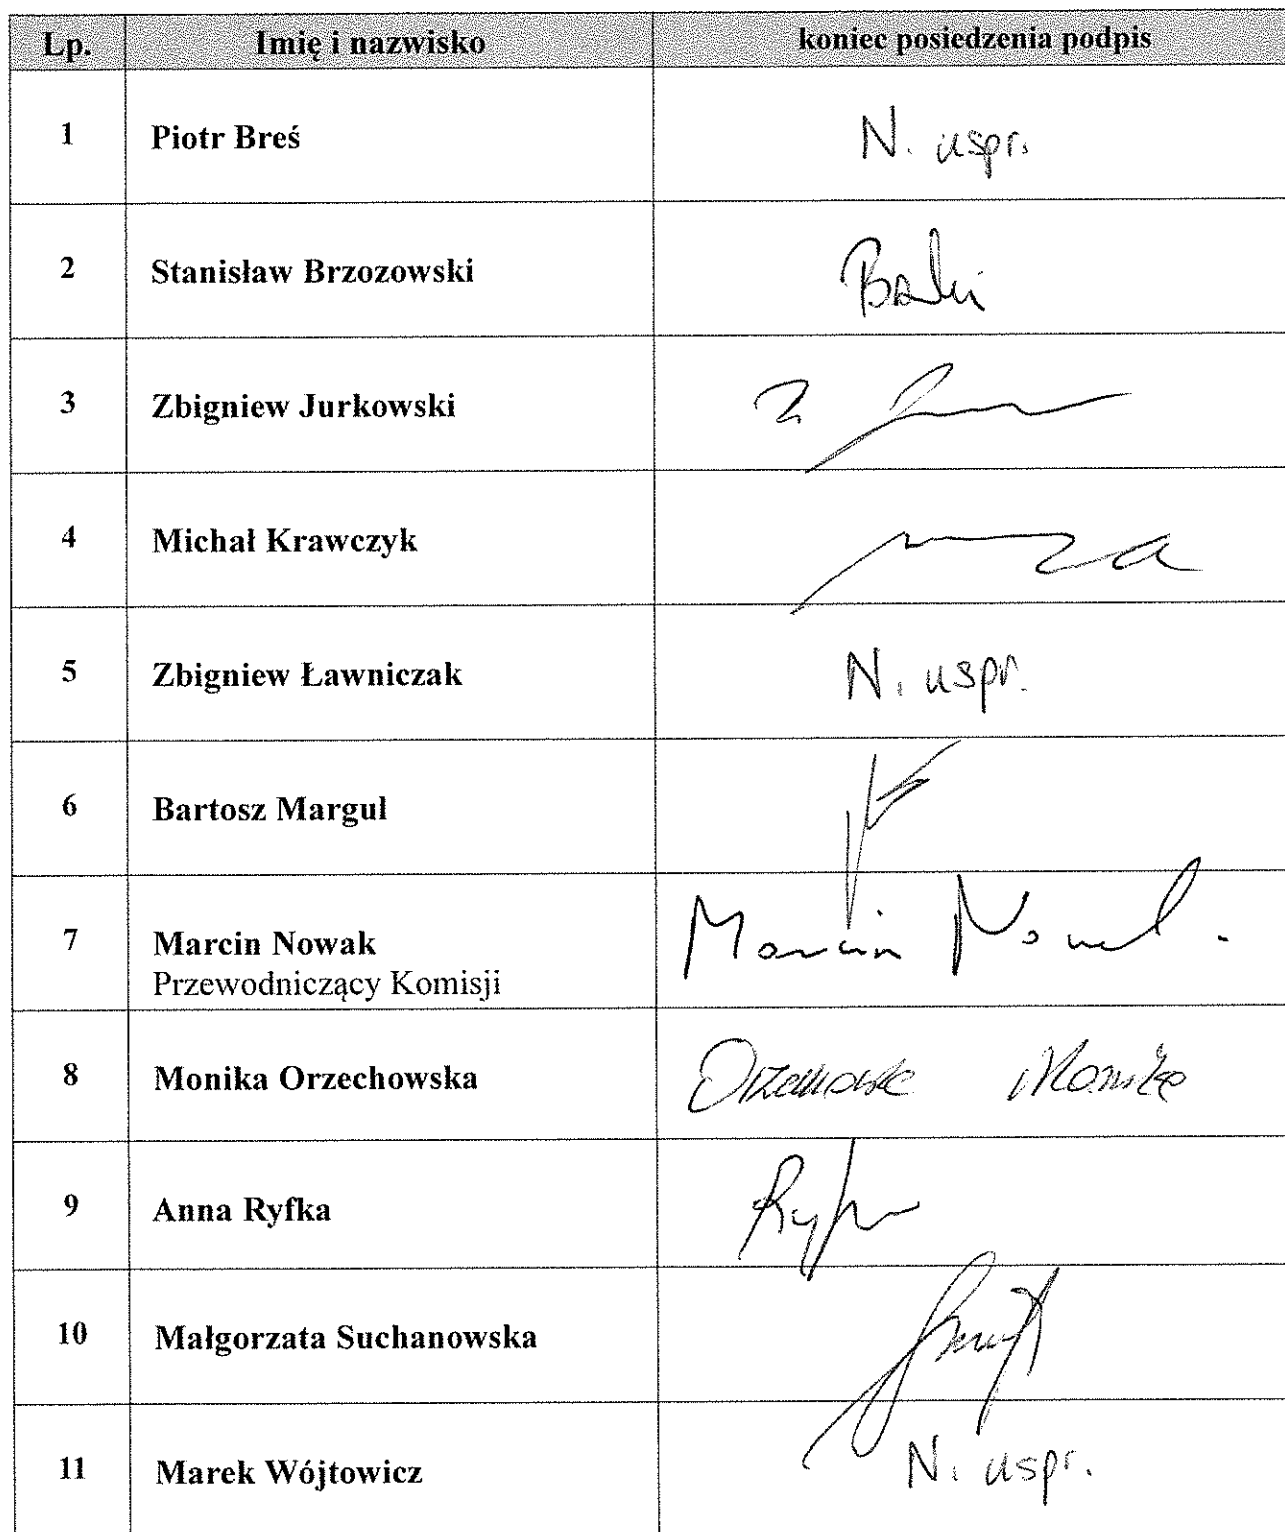 Lp. Imię i nazwisko koniec posiedzenia podpis
1 Piotr Breś N. uspr.
2 Stanisław Brzozowski
3 Zbigniew Jurkowski
4 Michał Krawczyk
5 Zbigniew Ławniczak N. uspr.
6 Bartosz Margul
7 Marcin Nowak Marcin Nowak
Przewodniczący Komisji
8 Monika Orzechowska Orzechowska Monika
9 Anna Ryfka
10 Małgorzata Suchanowska
11 Marek Wójtowicz N. uspr.